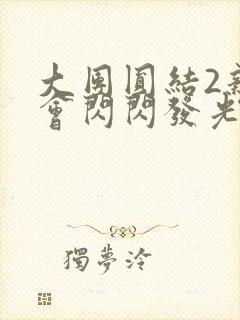 大團圓結2新
會閃閃發光
獨夢泠